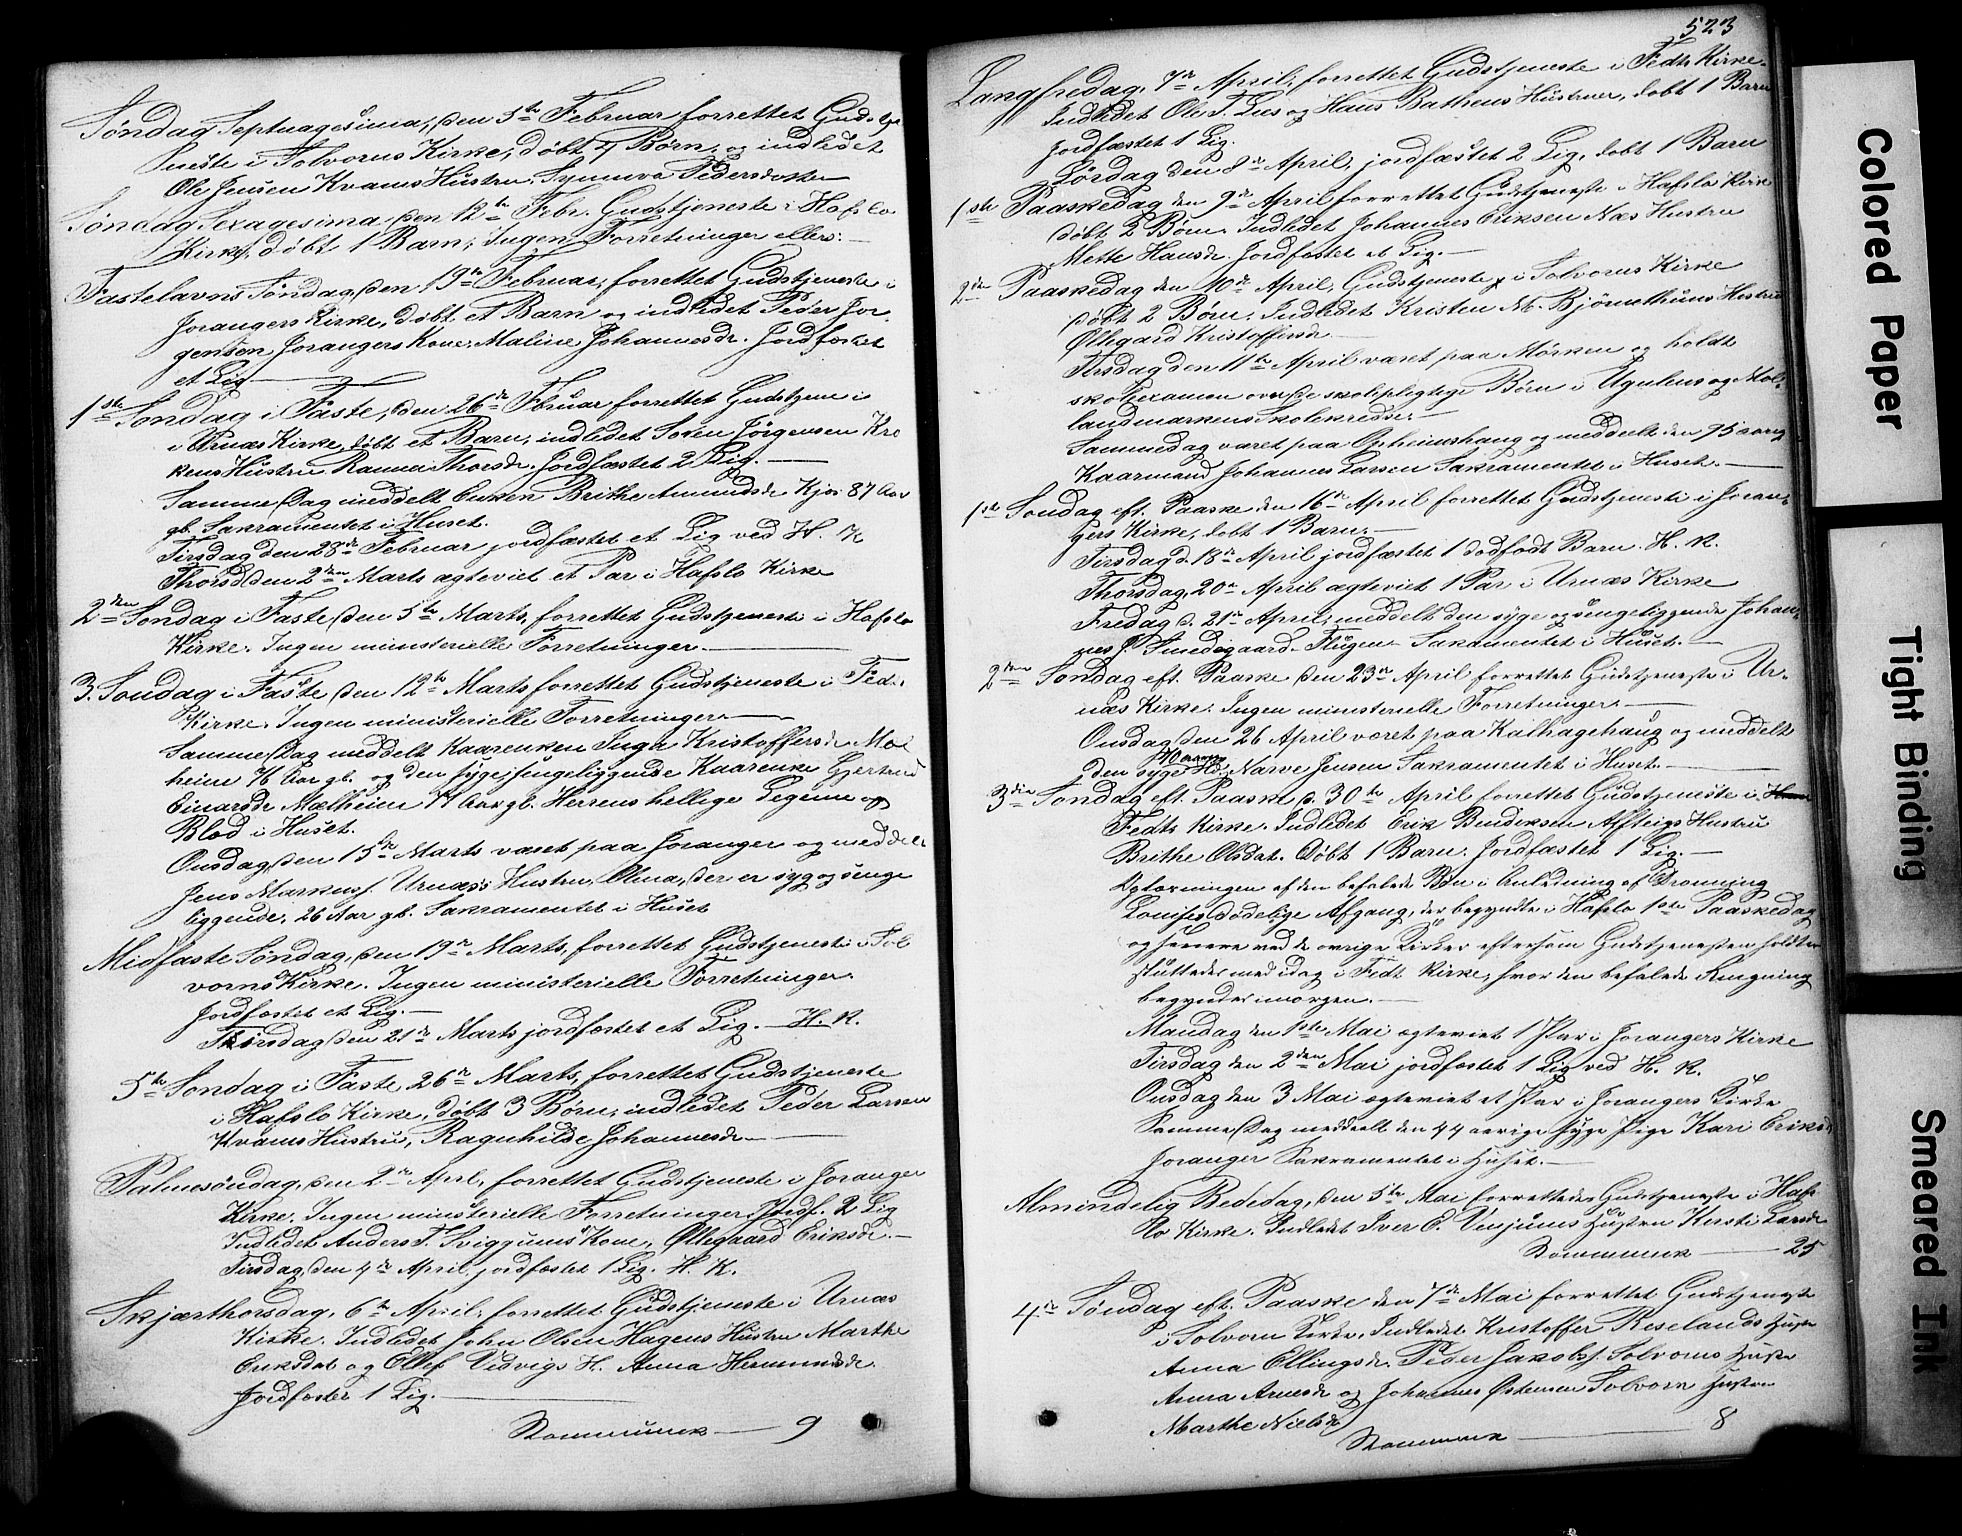 Søndag Septuagesima, den 5te Februar forrettet Gudstje
neste i Solvorns Kirke, døbt Børn, og indledet
Ole Jensen Kvams Hustru, Synneva Pedersdatter
Søndag Sexagesima den 12te Febr. Gudstjeneste i Hafslo
Kirke, døbt 1 Barn, Ingen Forretninger ellers.
Fastelavns Søndag, den 19de Februar, forrettet Gudstjeneste i
Jorangers Kirke, døbt et Barn og indledet Peder Jør-
gensen Jorangers Kone, Maline Johannesdr. Jordfæstet
et Lig
1ste Søndag i Faste, den 26de Februar forrettet Gudstjene
i Urnæs Kirke, døbt et Barn, indledet Søren Jørgensen Kro
kens Hustru Thorsdr. Jordfæstet 2 Lig.
Samme Dag meddelt Enken Brithe Amundsdr Kjos 87 Aar
gb. Sakramentet i Huset.
Tirsdag den 28de Februar jordfæstet et Lig ved H. K
Thorsd. den 2den Marts ægteviet et Par i Hafslo Kirke
2den Søndag i Faste, den 5te Marts, forrettet Gudstjeneste i Hafslo
Kirke. Ingen ministerielle Forretninger.
3. Søndag i Faste, den 12te Marts forrettet Gudstjeneste i Fedts
Kirke. Ingen ministerielle Forretninger
Samme Dag meddelt Kaarenken Inga Kristoffersdr Mæl
heim Aar gb. og den syge, sengeliggende Kaarenke Gjertrud
Einarsdr Mælheim Aar gl. Herrens hellige Legeme og
Blod i Huset.
Onsdag, den 15de Marts været paa Joranger og meddelt
Jens Markuss. Urnæs's Hustru, Olina, der er syg og senge
liggende, 26 Aar gb. Sakramentet i Huset
Midfaste Søndag, den 19de Marts, forrettet Gudstjeneste i Sol
vorns Kirke. Ingen ministerielle Forretninger.
Jordfæstet et Lig.
Tirsdag den 21de Marts jordfæstet et Lig. H. K.
5te Søndag i Faste, 26de Marts, forrettet Gudstjeneste
i Hafslo Kirke, døbt 3 Børn, indledet Peder Larsen
Kvams Hustru, Ragnhilde Johannesdr
Palmesøndag, den 2den April, forrettet Gudstjeneste i Joranger
Kirke. Ingen ministerielle Forretninger. Jordf. 2 Lig
Indledet Anders T. Sviggums Kone, Ollegaard Eriksdr.
Tirsdag den 4de April jordfæstet 1 Lig. H. K.
Skjærthorsdag, 6te April, forrettet Gudstjeneste i Urnæs
Kirke. Indledet John Olsen Hagens Hustru Marthe
Eriksdat og Ellef Vidvigs H. Anna Hermundsdr.
Jordfæstet 1 Lig.
Kommunik 9
523
Langfredag, 7de April, forrettet Gudstjeneste i Fedts Kirke.
Indledet Ole T. Lies og Hans Hustruer, døbt 1 Barn
Jordfæstet 1 Lig.
Lørdag den 8de April, jordfæstet 2 Lig, døbt 1 Barn
1ste Paaskedag den 9de April forrettet Gudstjeneste i Hafslo Kirke
døbt 2 Børn. Indledet Johannes Eriksen Næs Hustru
Mette Hansdr. Jordfæstet et Lig.
2den Paaskedag den 10de April, Gudstjeneste i Solvorns Kirke
døbt 2 Børn. Indledet Kristen M. Bjørnethuns Hustru
Ollegard Kristoffersdr.
Tirsdag den 11te April været paa Mørken og holdt
skoleexamen over de skolepligtige Børn i Ugulens og Mol-
landmarkens Skolekredse.
Sammedag været paa Opheimshaug og meddelt den 95 aarig
Kaarmand Johannes Larsen Sakramentet i Huset.
1ste Søndag eft. Paaske den 16de April forrettet Gudstjeneste i Joran-
gers Kirke, døbt 1 Barn.
Tirsdag d. 18de April jordfæstet 1 dødfødt Barn. H. K.
Thorsdag, 20de April ægteviet 1 Par i Urnæs Kirke
Fredag d. 21de April, meddelt den syge og sengeliggende Johan-
nes J. Smedegaard Flugen Sakramentet i Huset.
2den Søndag eft. Paaske den 23de April forrettet Gudstjeneste i Ur-
næs Kirke. Ingen ministerielle Forretninger.
Onsdag den 26 April været paa Kalhagehaug og meddelt
den syge 70 aarige Narve Jensen Sakramentet i Huset.
3die Søndag eft. Paaske d. 30te April forrettet Gudstjeneste i
Fedts Kirke. Indledet Erik Bendiksen Alsteigs Hustru
Brithe Olsdat. Døbt 1 Barn. Jordfæstet 1 Lig.
Oplæsningen af den befalede Bøn i Anledning af Dronning
Louises dødelige Afgang, der begyndte i Hafslo 1ste Paaskedag
og senere ved de øvrige Kirker eftersom Gudstjenesten holdtes
sluttedes med idag i Fedt Kirke, hvor den befalede Ringning
begyndes imorgen.
Mandag den 1ste Mai ægteviet 1 Par i Jorangers Kirke
Tirsdag den 2den Mai jordfæstet 1 Lig ved H. K.
Onsdag den 3 Mai ægteviet et Par i Jorangers Kirke
Samme Dag meddeelt den 44 aarige syge Pige Kari Eriksd.
Joranger Sakramentet i Huset.
Almindelig Bededag, den 5te Mai forrettedes Gudstjeneste i Haf-
slo Kirke. Indledet Iver E. Venjums Hustru Kersti Larsdr
Kommunik 25
4de Søndag eft. Paaske den 7de Mai forrettet Gudstjeneste
i Solvorn Kirke. Indledet Kristoffer Reselands Hustru
Anna Ellingsdr. Peder Jakobs. Solvorns Hustru
Anna Arnesdr og Johannes Østensen Solvorn Hustru
Marthe Nielsdr
Kommunik 8
Colored Paper
Tight Binding
Smeared Ink